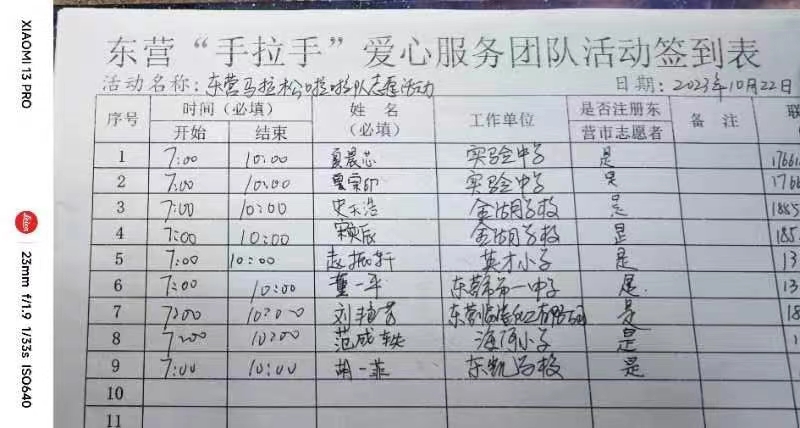 XIAOMI 13 PRO
Leica
23mm f/1.9 1/33s ISO640
东营“手拉手”爱心服务团队活动签到表
活动名称：东营马拉松啦啦队志愿活动 日期：2023年10月22日
序号 时间（必填） 姓名（必填） 工作单位 是否注册东营市志愿者 备注 联
开始 结束
1 7:00 10:00 夏晨芯 实验中学 是 1766
2 7:00 10:00 实验中学 是 1766
3 7:00 10:00 史天浩 金湖学校 是 1885
4 7:00 10:00 金湖学校 是 185
5 7:00 10:00 赵振轩 英才小学 是 13
6 7:00 10:00 龚一平 东营市一中学 是 13
7 7:00 10:00 刘 东营 有限公司 是 18
8 7:00 10:00 范成轶 海河小学 是 1
9 7:00 10:00 胡一菲 东凯学校 是
10
11